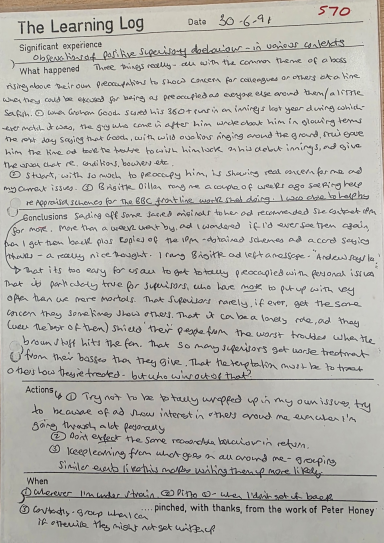 570
The Learning Log Date 30-6-91
Significant experience
Observations of positive supervisory behaviour - in various contexts
What happened Three things really - all with the common theme of a boss
rising above their own preoccupations to show concern for colleagues or others at a time
when they could be excused for being as preoccupied as everyone else around them / a little
selfish. ① When Graham Gooch scored his 300+ runs in an innings last year during which
ever match it was, the guy who came in after him wrote about him in glowing terms
the next day saying that Gooch, with wild ovations ringing around the ground, must have
the time and to take the trouble to wish him luck on his debut innings, and give
the usual chat re. conditions, bowlers etc.
② Stuart, with so much to preoccupy him, is showing real concern for me and
my current issues. ③ Brigitte Dillon rang me a couple of weeks ago seeking help
re Appraisal schemes for the BBC front line work she's doing. I was able to help by
Conclusions sending off some sacred originals to her and recommended she contact IPM
for more. More than a week went by, and I wondered if I'd ever see them again,
I got them back plus copies of the IPM-obtained schemes and a card saying
thanks - a really nice thought. I rang Brigitte and left a message.
① That it's too easy for us all to get totally preoccupied with personal issues
That it's particularly true for supervisors, who have more to put up with very
often than we mere mortals. That supervisors rarely, if ever, get the same
concern they sometimes show others. That it can be a lonely role, and they
(well the best of them) shield their people from the worst troubles when the
brown stuff hits the fan. That so many supervisors get worse treatment
from their bosses than they give. That the temptation must be to treat
others how they're treated - but who wins out of that?
Actions ① Try not to be totally wrapped up in my own issues, try
to be aware of and show interest in others around me even when I'm
going through a lot personally
② Don't expect the same reasonable behaviour in return.
③ Keep learning from what goes on all around me - grouping
similar events like this makes writing them up more likely
When
① Wherever I'm under strain ② Ditto ① - when I don't get it back
③ Constantly - group when I can
if otherwise they might not get written up
....pinched, with thanks, from the work of Peter Honey